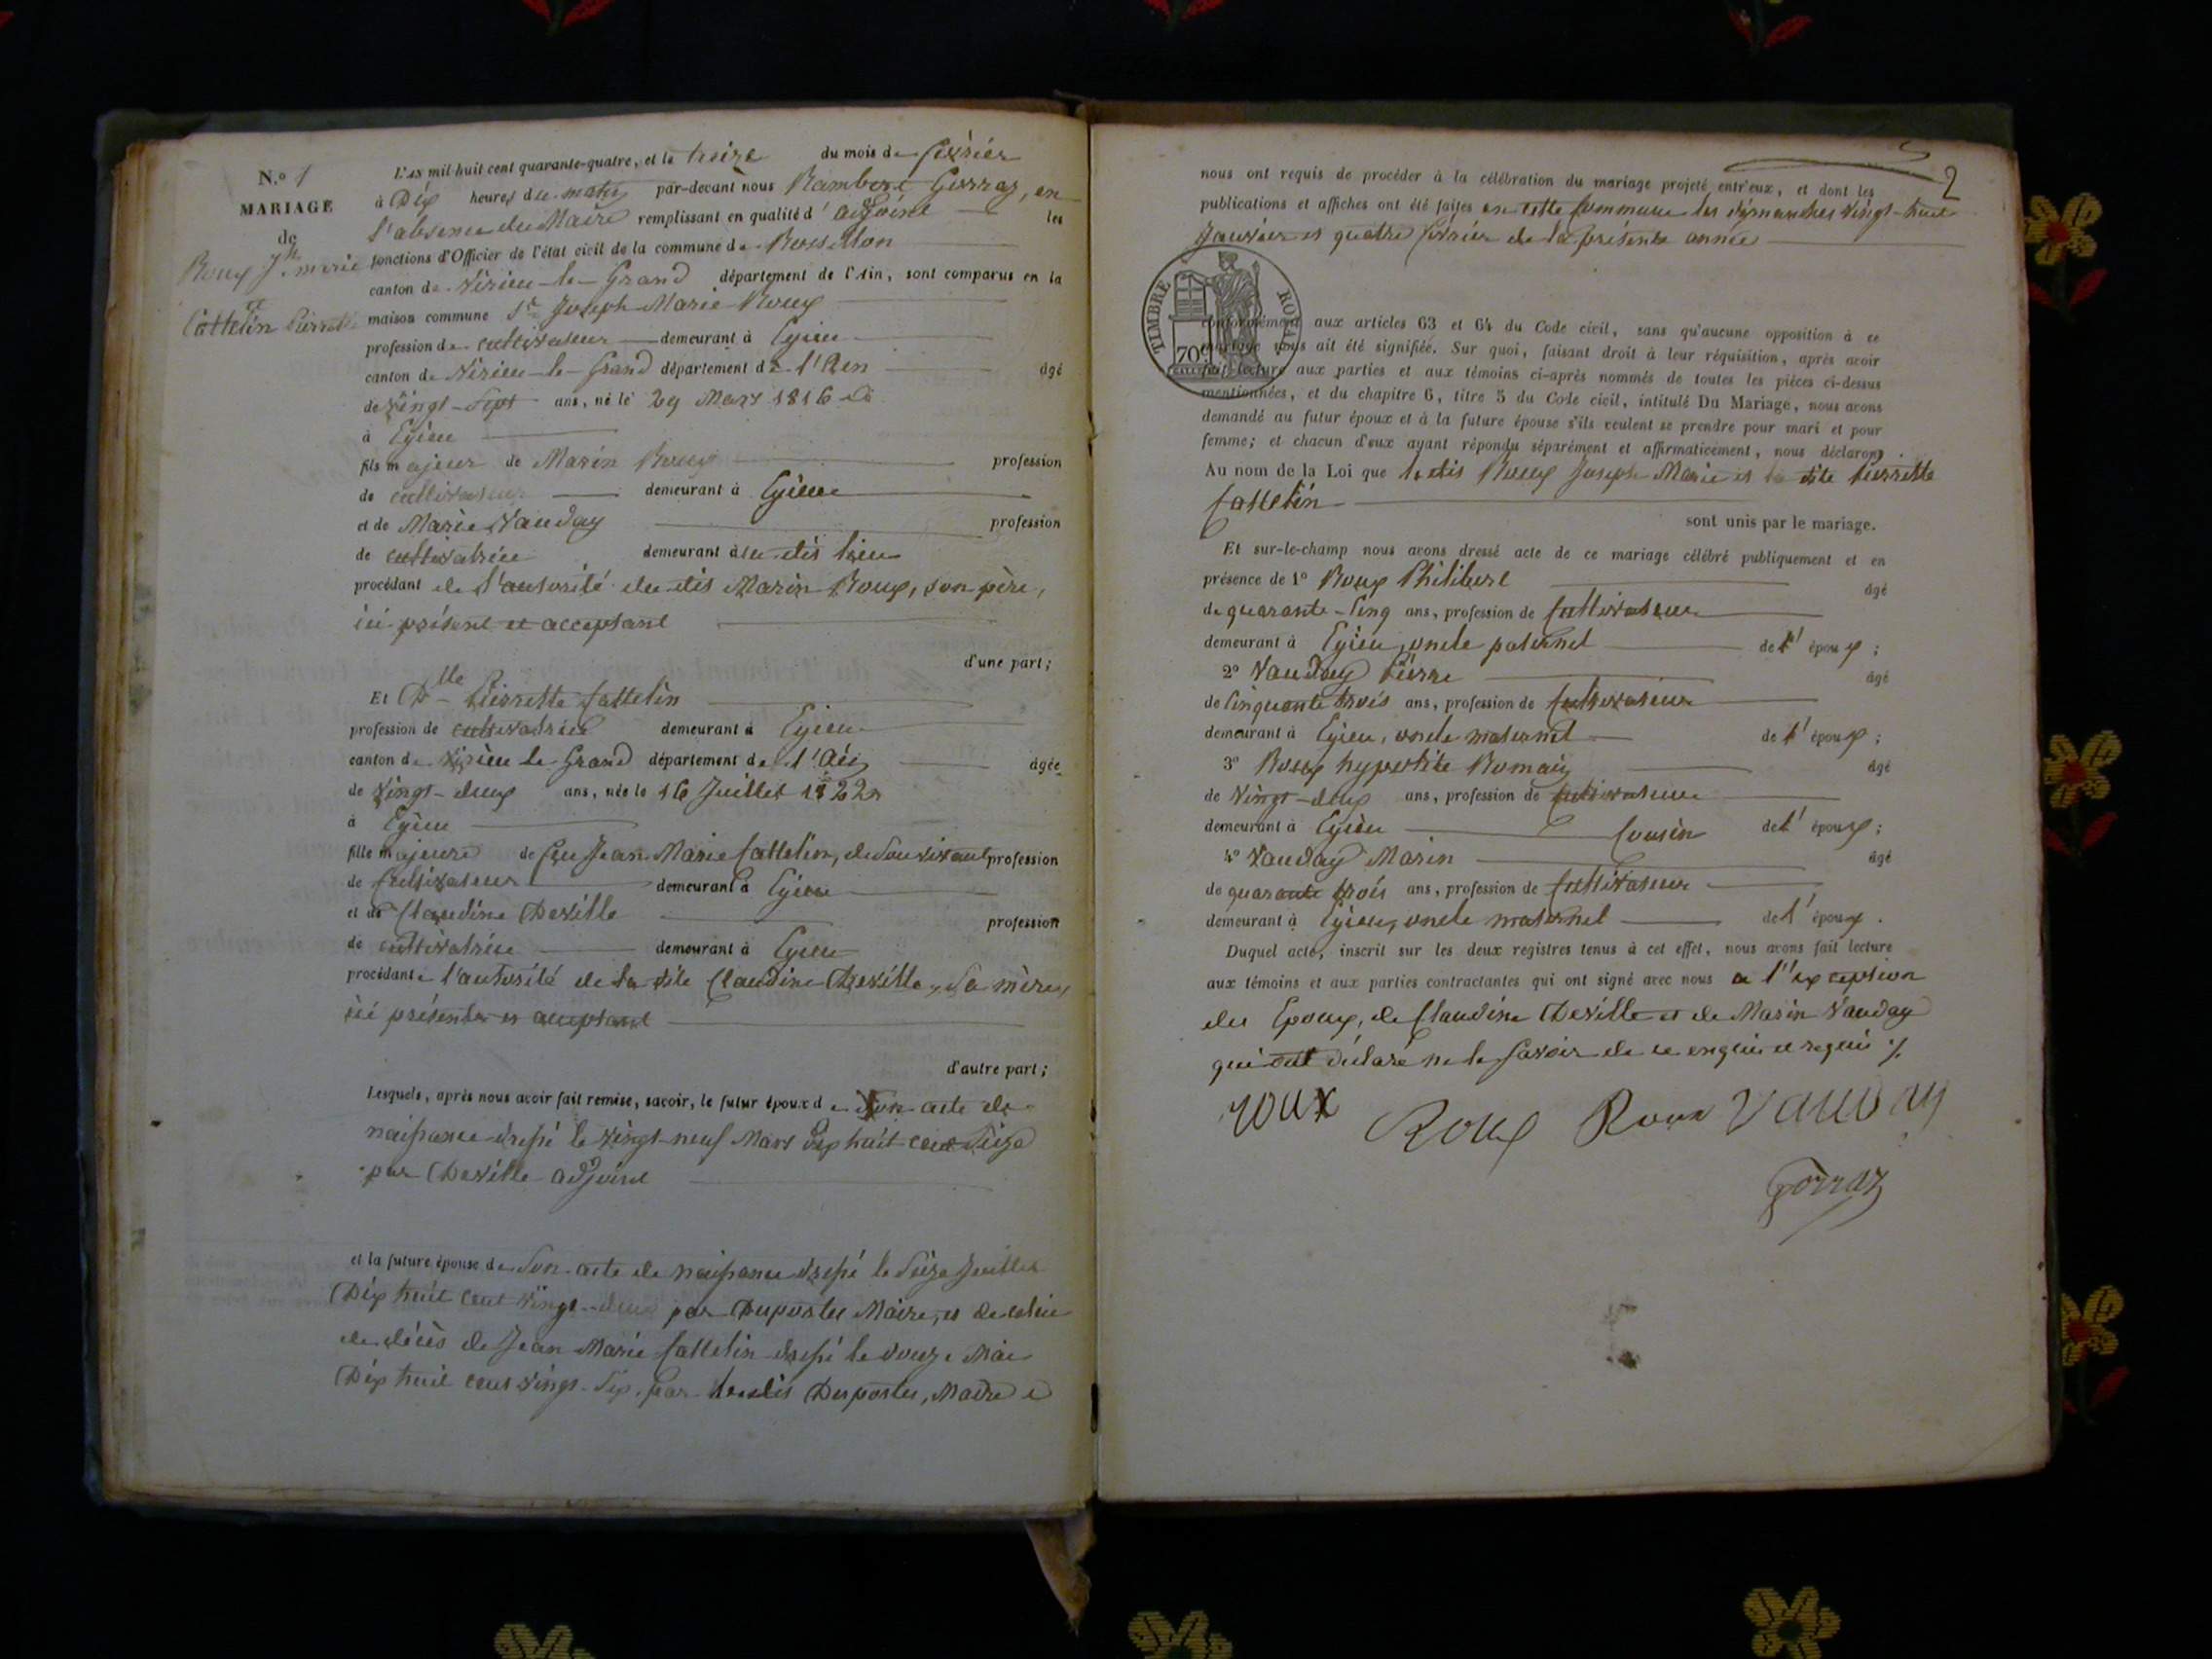 N.o 1
MARIAGE
de
Roux Jh marie
et
Cattelin Pierrette
L'AN mil huit cent quarante-quatre, et le treize du mois de février
à Dix heures du matin par-devant nous Rambert Gorraz, en
l'absence du Maire remplissant en qualité d'adjoint les
fonctions d'Officier de l'état civil de la commune de Rossillon
canton de Virieu-le-Grand département de l'Ain, sont comparus en la
maison commune Sr Joseph-Marie Roux
profession de cultivateur demeurant à Egieu
canton de Virieu-le-Grand département de l'Ain âgé
de vingt-sept ans, né le 29 Mars 1816
à Egieu
fils majeur de Marin Roux profession
de cultivateur demeurant à Egieu
et de Marie Vauday profession
de cultivatrice demeurant à dit lieu
procédant de l'autorité du dit Marin Roux, son père,
ici présent et acceptant
d'une part;
Et Dlle Pierrette Cattelin
profession de cultivatrice demeurant à Egieu
canton de Virieu le Grand département de l'Ain âgée
de vingt-deux ans, née le 16 Juillet 1822
à Egieu
fille majeure de feu Jean Marie Cattelin, de son vivant profession
de cultivateur demeurant à Egieu
et de Claudine Deville profession
de cultivatrice demeurant à Egieu
procédant de l'autorité de la dite Claudine Deville, sa mère,
ici présente et acceptant
d'autre part;
Lesquels, après nous avoir fait remise, savoir, le futur époux de son acte de
naissance dressé le vingt-neuf Mars dix huit cent seize
par Deville adjoint
et la future épouse de son acte de naissance dressé le seize Juillet
Dix huit cent vingt-deux par Dupostes Maire, et de celui
de décès de Jean Marie Cattelin dressé le douze Mai
Dix huit cent vingt-six, par le dit Desportes, Maire
2
nous ont requis de procéder à la célébration du mariage projeté entr'eux, et dont les
publications et affiches ont été faites en cette Commune les dimanches vingt-huit
Janvier et quatre février de la présente année
TIMBRE ROYAL
70c
conformément aux articles 63 et 64 du Code civil, sans qu'aucune opposition à ce
mariage nous ait été signifiée. Sur quoi, faisant droit à leur réquisition, après avoir
fait lecture aux parties et aux témoins ci-après nommés de toutes les pièces ci-dessus
mentionnées, et du chapitre 6, titre 5 du Code civil, intitulé Du Mariage, nous avons
demandé au futur époux et à la future épouse s'ils veulent se prendre pour mari et pour
femme; et chacun d'eux ayant répondu séparément et affirmativement, nous déclarons
Au nom de la Loi que le dit Roux Joseph Marie et la dite Pierrette
Cattelin
sont unis par le mariage.
Et sur-le-champ nous avons dressé acte de ce mariage célébré publiquement et en
présence de 1o Roux Philibert âgé
de quarante-cinq ans, profession de Cultivateur
demeurant à Egieu, oncle paternel de l'époux;
2o Vauday Pierre âgé
de Cinquante trois ans, profession de Cultivateur
demeurant à Egieu, oncle maternel de l'époux;
3o Roux hypolite Romain âgé
de Vingt-deux ans, profession de Cultivateur
demeurant à Egieu Cousin de l'époux;
4o Vauday Marin âgé
de quarante trois ans, profession de Cultivateur
demeurant à Egieu, oncle maternel de l'époux.
Duquel acte, inscrit sur les deux registres tenus à cet effet, nous avons fait lecture
aux témoins et aux parties contractantes qui ont signé avec nous à l'exception
des Epoux, de Claudine Deville et de Marin Vauday
qui ont déclaré ne le savoir de ce enquis et requis
roux Roux Roux Vauday
gorraz